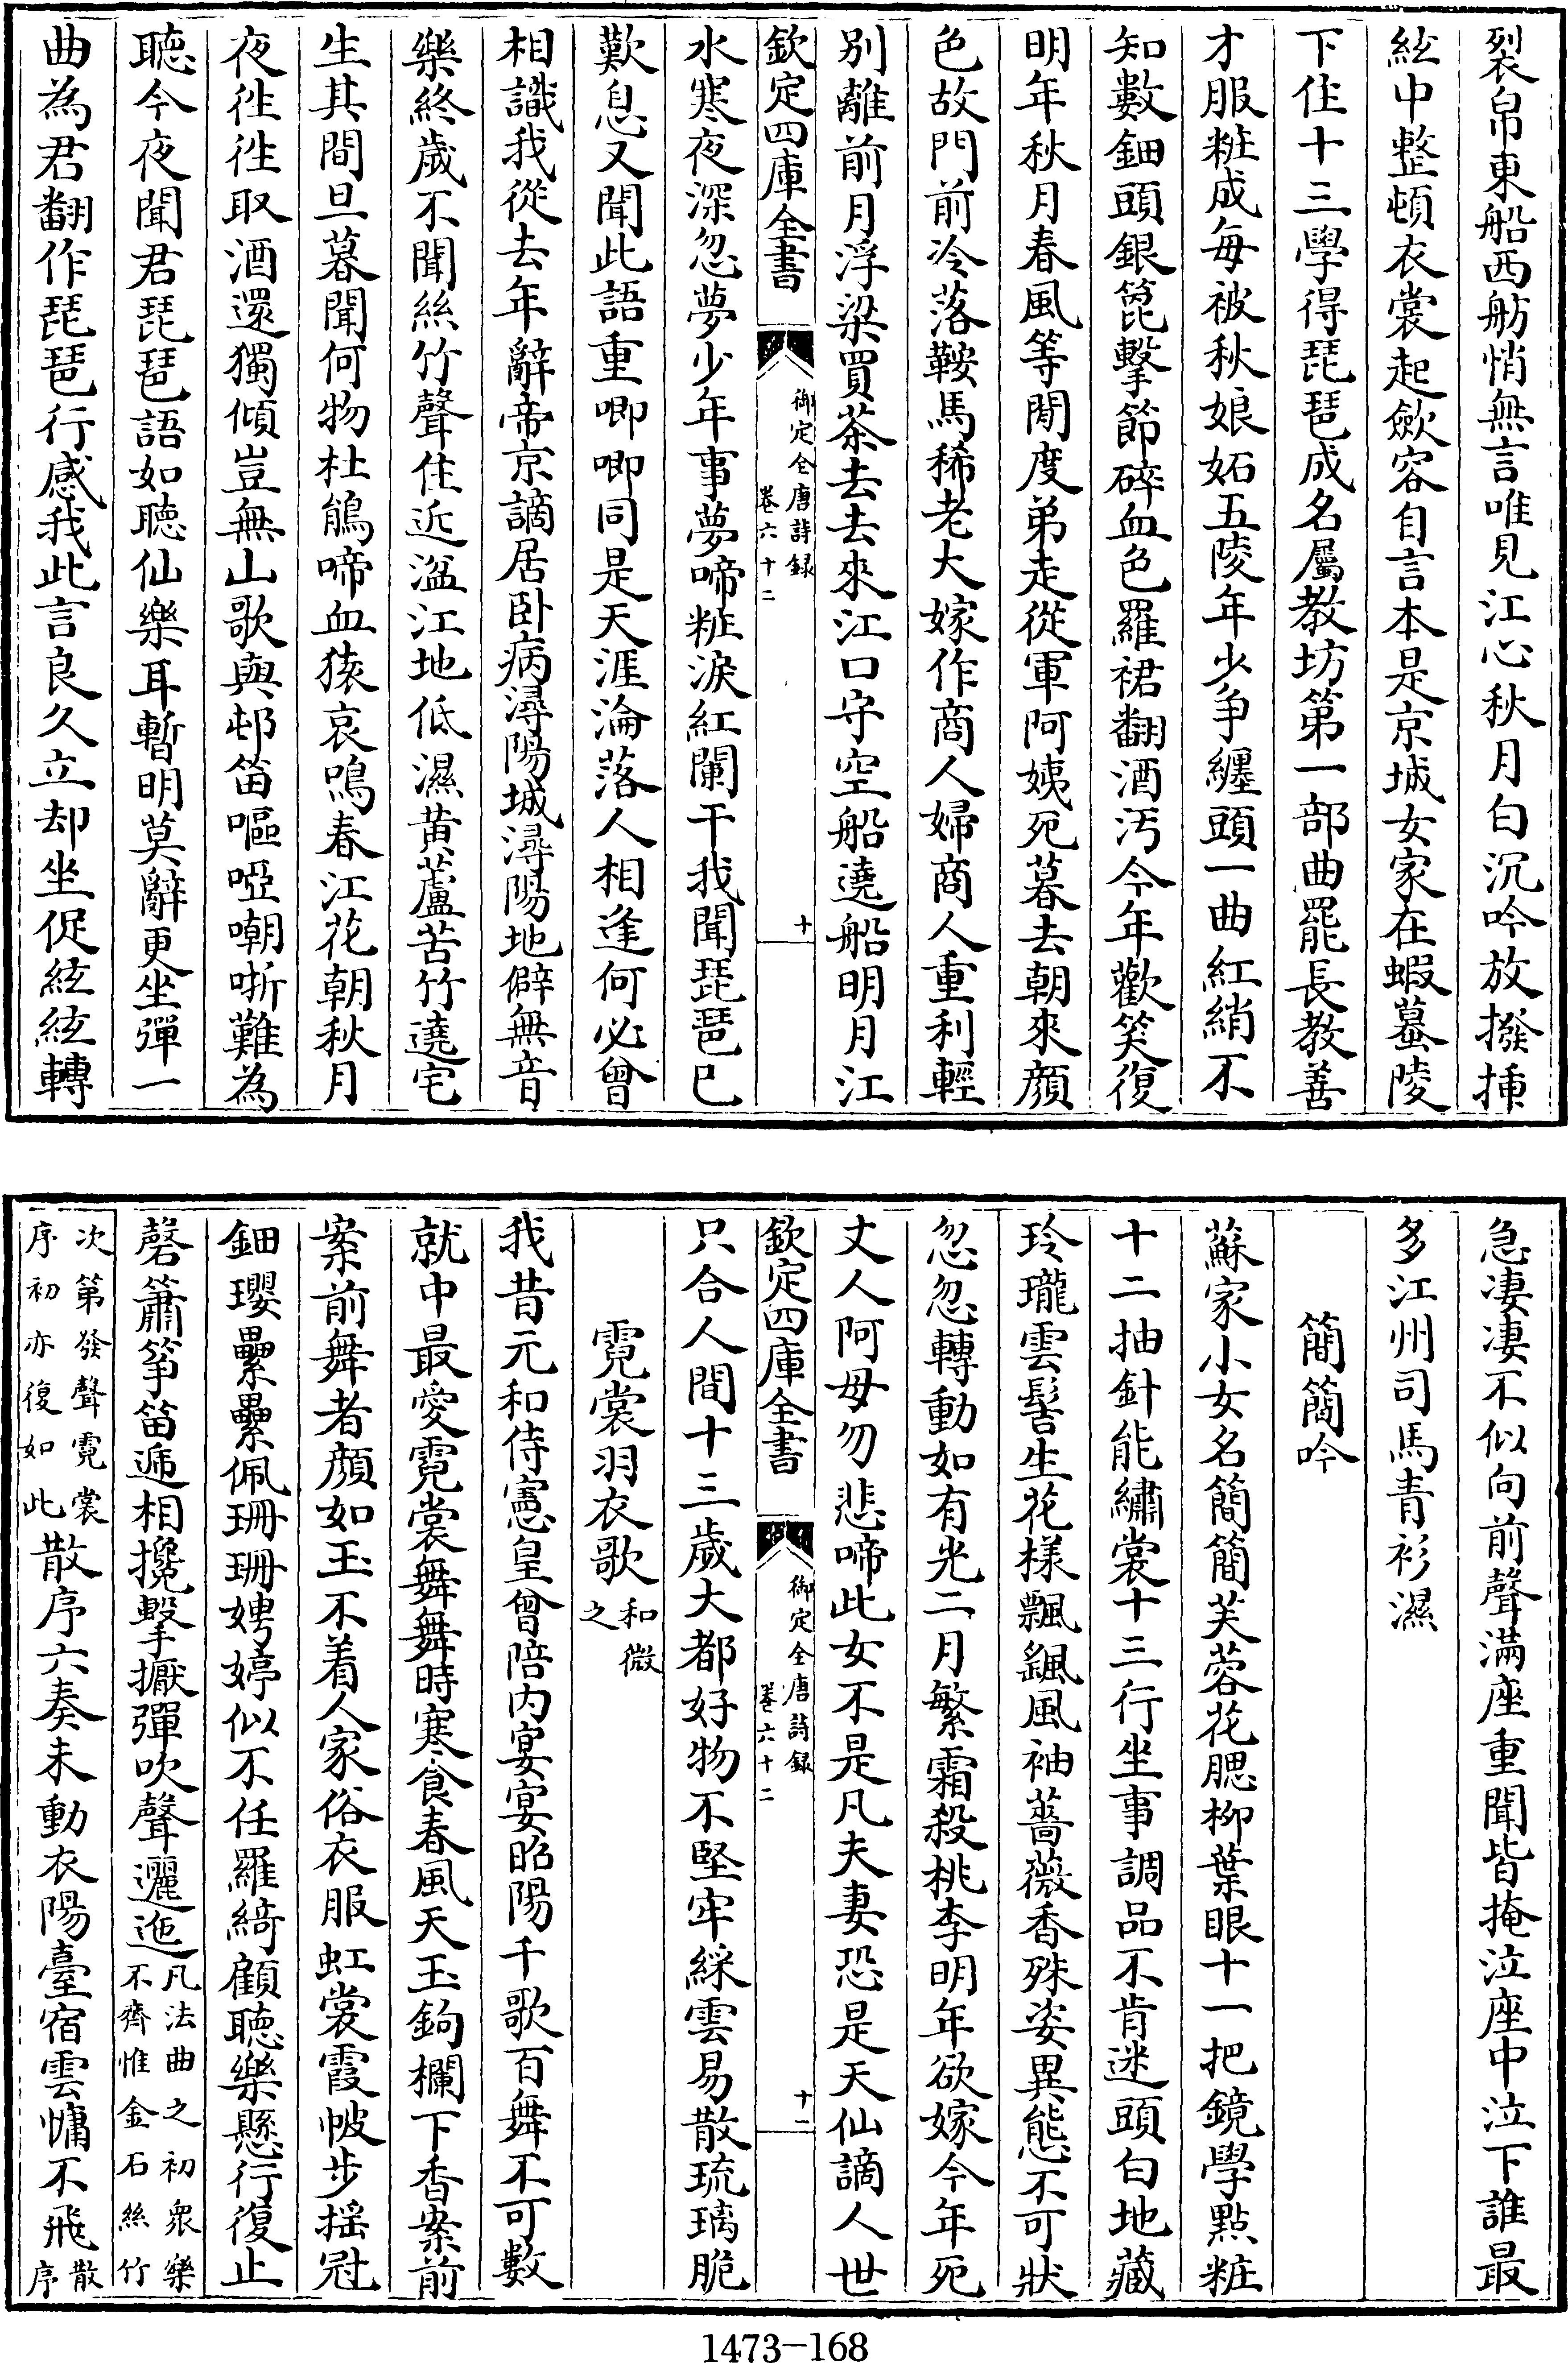 裂帛東船西舫悄無言唯見江心秋月白沉吟放撥揷
絃中整頓衣裳起歛容自言本是京城女家在蝦蟇陵
下住十三學得琵琶成名屬教坊第一部曲罷長教善
才服粧成每被秋娘妬五陵年少爭纏頭一曲紅綃不
知數鈿頭銀篦擊節碎血色羅裙翻酒汚今年歡笑復
明年秋月春風等閒度弟走從軍阿姨死暮去朝來顔
色故門前冷落鞍馬稀老大嫁作商人婦商人重利輕
別離前月浮梁買茶去去來江口守空船遶船明月江
欽定四庫全書
御定全唐詩録
卷六十二
十
水寒夜深忽夢少年事夢啼粧淚紅闌干我聞琵琶已
歎息又聞此語重唧唧同是天涯淪落人相逢何必曾
相識我從去年辭帝京謫居卧病潯陽城潯陽地僻無音
樂終歲不聞絲竹聲住近湓江地低濕黄蘆苦竹遶宅
生其間旦暮聞何物杜鵑啼血猿哀鳴春江花朝秋月
夜往往取酒還獨傾豈無山歌與邨笛嘔啞嘲哳難為
聽今夜聞君琵琶語如聽仙樂耳暫明莫辭更坐彈一
曲為君翻作琵琶行感我此言良久立却坐促絃絃轉
急凄凄不似向前聲滿座重聞皆掩泣座中泣下誰最
多江州司馬青衫濕
簡簡吟
蘇家小女名簡簡芙蓉花腮柳葉眼十一把鏡學點粧
十二抽針能繡裳十三行坐事調品不肯迷頭白地藏
玲瓏雲髻生花様飄颻風袖薔薇香殊姿異態不可狀
忽忽轉動如有光二月繁霜殺桃李明年欲嫁今年死
丈人阿母勿悲啼此女不是凡夫妻恐是天仙謫人世
欽定四庫全書
御定全唐詩録
卷六十二
十一
只合人間十三歲大都好物不堅牢綵雲易散琉璃脆
霓裳羽衣歌和微之
我昔元和侍憲皇曾陪内宴宴昭陽千歌百舞不可數
就中最愛霓裳舞舞時寒食春風天玉鉤欄下香案前
案前舞者顔如玉不着人家俗衣服虹裳霞帔步揺冠
鈿瓔纍纍佩珊珊娉婷似不任羅綺顧聽樂懸行復止
磬簫筝笛遞相攙擊擫彈吹聲邐迤凡法曲之初衆樂不齊惟金石絲竹
次第發聲霓裳序初亦復如此散序六奏未動衣陽臺宿雲慵不飛散序
1473-168